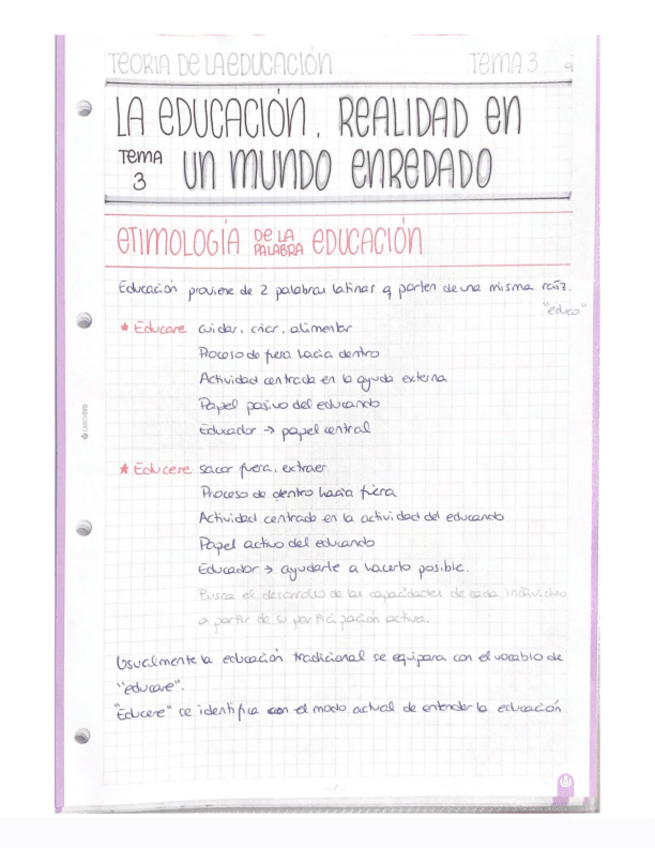 TEORIA DE LA EDUCACIÓN TEMA 3
LA EDUCACIÓN. REALIDAD EN
TEMA 3 UN MUNDO ENREDADO
ETIMOLOGÍA DE LA PALABRA EDUCACIÓN
Educación proviene de 2 palabras latinas q parten de una misma raíz.
"educo"
★ Educare cuidar, criar, alimentar
Proceso de fuera hacia dentro
Actividad centrada en la ayuda externa
Papel pasivo del educando
Educador → papel central
★ Educere sacar fuera, extraer
Proceso de dentro hacia fuera
Actividad centrada en la actividad del educando
Papel activo del educando
Educador → ayudarle a hacerlo posible.
Busca el desarrollo de las capacidades de cada individuo
a partir de su participación activa.
Usualmente la educación tradicional se equipara con el vocablo de
"educare".
"Educere" se identifica con el modo actual de entender la educación